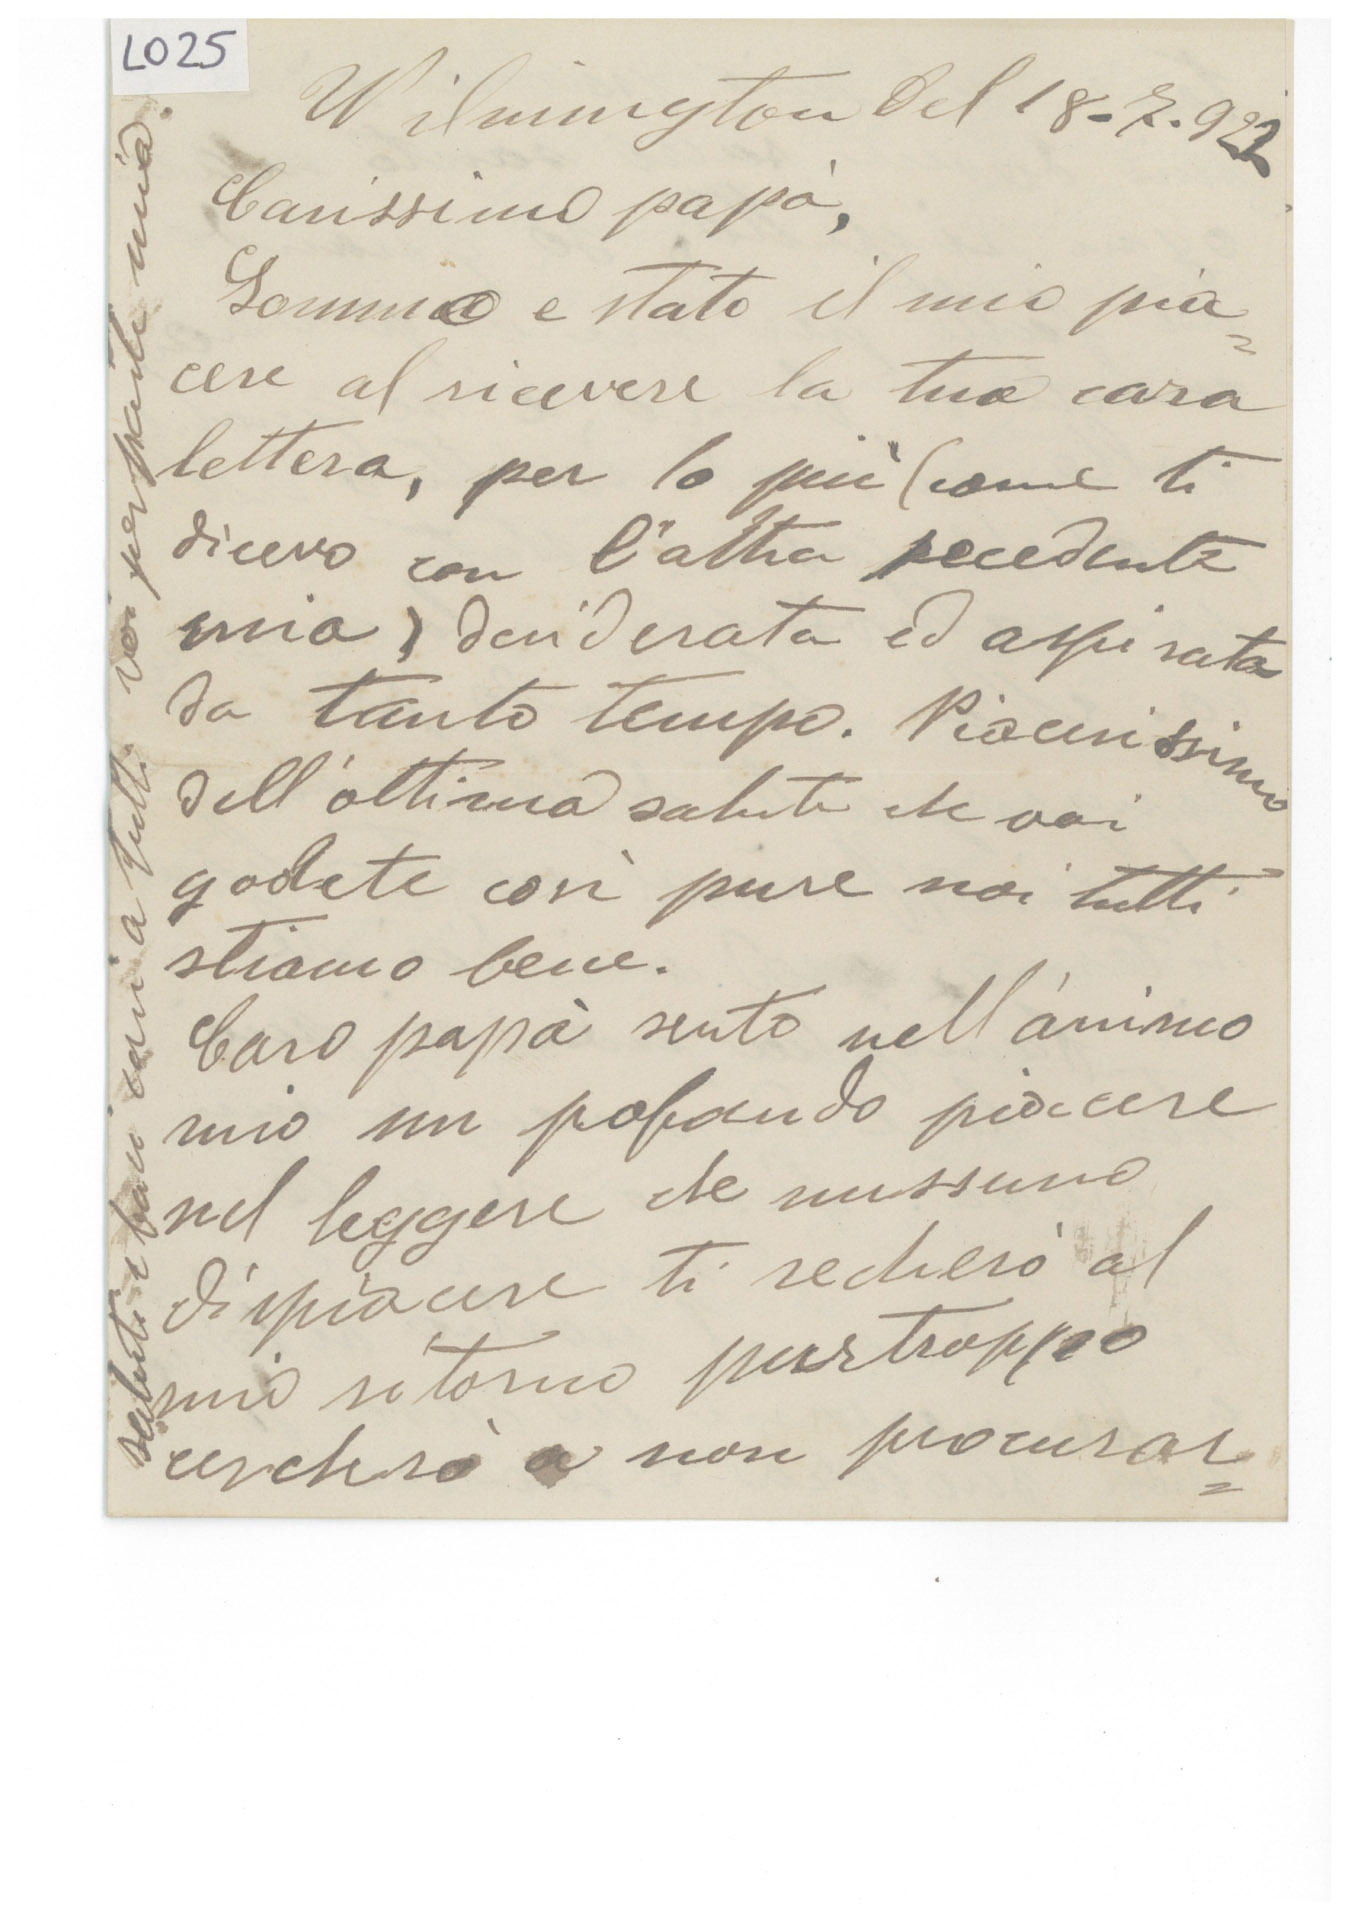 LO25
Wilmington Del 18-7-922
Carissimo papà,
Sommo e stato il mio pia=
cere al ricevere la tua cara
lettera, per lo più (come ti
dicevo con l'altra precedente
mia) desiderata ed aspirata
da tanto tempo. Piacerissimo
dell'ottima salute che voi
godete così pure noi tutti
stiamo bene.
Caro papà sento nell'animo
mio un profondo piacere
nel leggere che nussuno
dispiacere ti recherò al
mio ritorno purtroppo
cercherò a non procurar=
saluti e baci cari a tutti voi per parte mia.